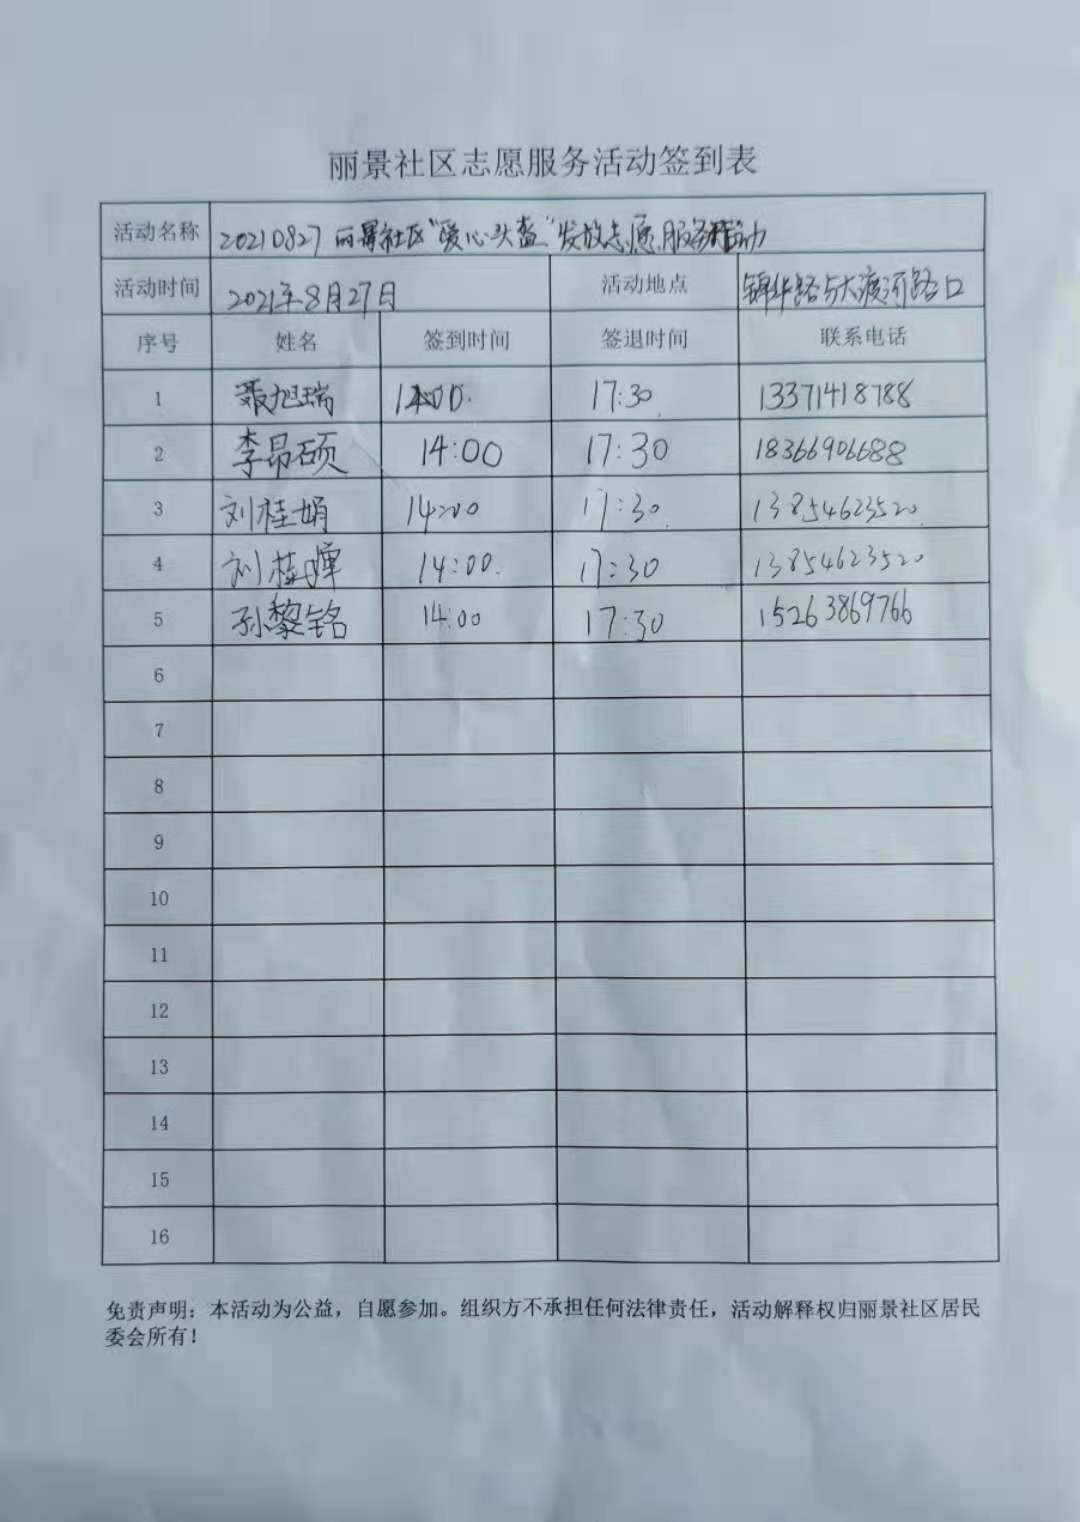 丽景社区志愿服务活动签到表
活动名称 20210827 丽景社区“爱心头盔”发放志愿服务活动
活动时间 2021年8月27日 活动地点 锦华路与大渡河路口
序号 姓名 签到时间 签退时间 联系电话
1 聂旭瑞 14:00. 17:30. 13371418788
2 李昂硕 14:00 17:30 18366906688
3 刘桂娟 14:00 17:30. 13854623520
4 刘桂 14:00. 17:30 13854623520
5 孙黎铭 14:00 17:30 15263869766
6
7
8
9
10
11
12
13
14
15
16
免责声明：本活动为公益，自愿参加。组织方不承担任何法律责任，活动解释权归丽景社区居民
委会所有！